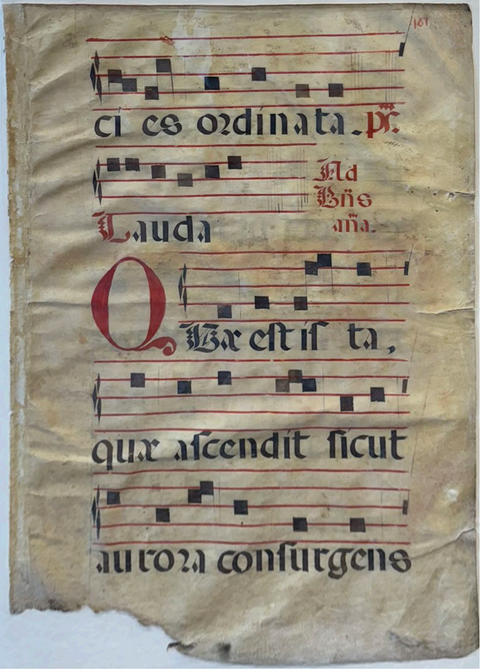 161
ci es ordinata. ps.
Lauda
Ad
Bñs
aña.
QVæ est is ta,
quæ ascendit sicut
aurora consurgens